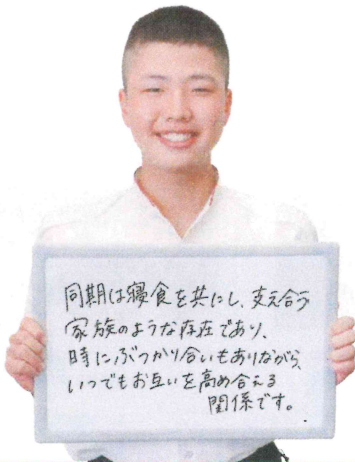 同期は寝食を共にし、支え合う
家族のような存在であり、
時にぶつかり合いもありながら、
いつでもお互いを高め合える
関係です。